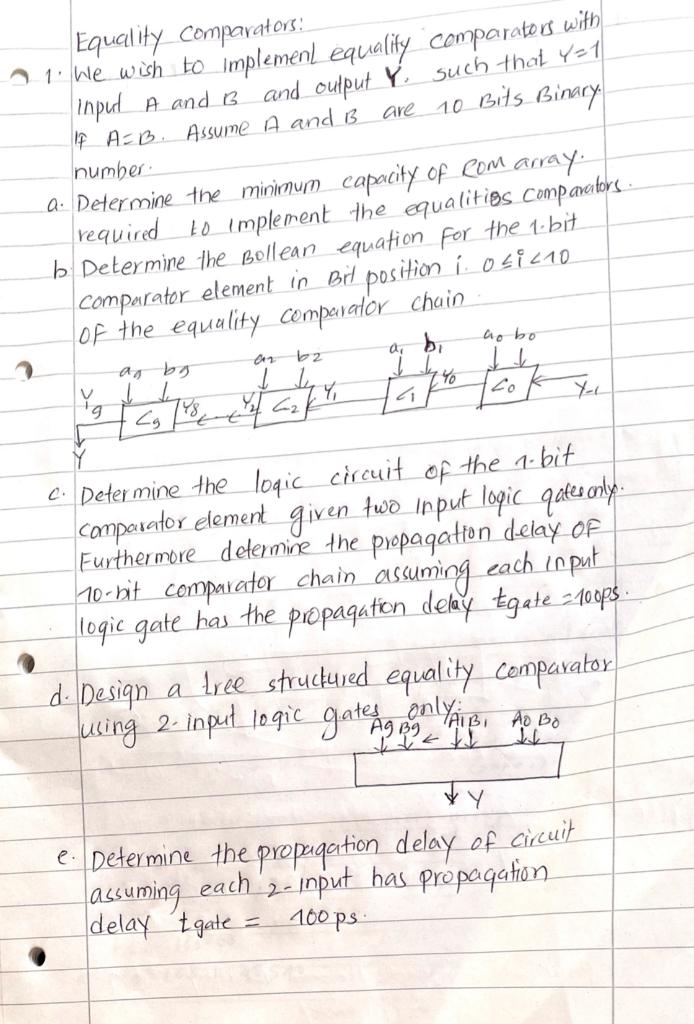 Equality Comparators:
1. We wish to implement equality comparators with
input A and B and output Y. such that Y=1
If A=B. Assume A and B are 10 Bits Binary
number.
a. Determine the minimum capacity of Rom array.
required to implement the equalities comparators.
b. Determine the Bollean equation for the 1-bit
comparator element in Bit position i. 0≤i<10
OF the equality comparator chain
a9 b9 a2 b2 a1 b1 a0 b0
Y9 C9 Y8 Y2 C2 Y1 C1 Y0 C0 Y-1
Y
c. Determine the logic circuit of the 1-bit
comparator element given two input logic gates only.
Furthermore determine the propagation delay of
10-bit comparator chain assuming each input
logic gate has the propagation delay tgate = 100ps.
d. Design a tree structured equality comparator
using 2-input logic gates only:
A9 B9 A1 B1 A0 B0
Y
e. Determine the propagation delay of circuit
assuming each 2-input has propagation
delay tgate = 100ps.